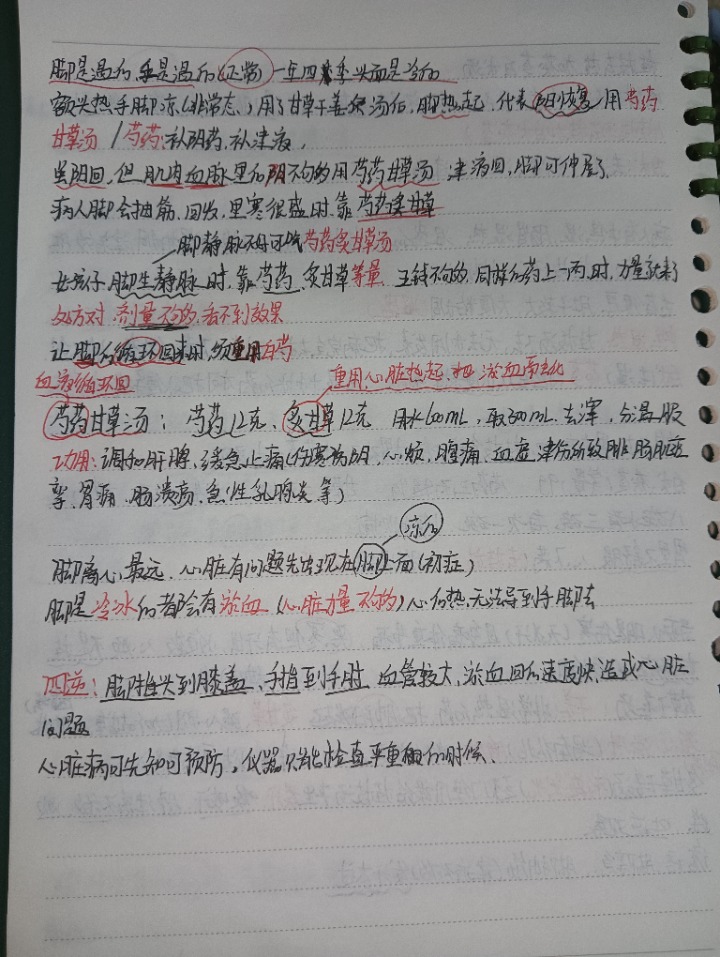 脚是温的,手是温的(正常)一年四季头面是冷的
额头热手脚冻(非常态)用了甘草干姜汤后,脚热起,代表阳恢复,用芍药
甘草汤/芍药:补阴药,补津液,
阴回,但肌肉血脉里的阴不够多用芍药甘草汤 津液回,脚可伸展了
病人脚会抽筋,回收,里寒很盛时,靠芍药炙甘草
脚静脉不好可吃芍药炙甘草汤
女孩子,脚生静脉时,靠芍药、炙甘草等量 五钱不够的,同样的药上一两时,力量就来了
处方对,剂量不够,看不到效果
让脚的循环回来时,须重用白药
血液循环回 重用心脏热起,把淤血去化
芍药甘草汤:芍药12克,炙甘草12克 用水600mL,取300mL,去滓,分温服
功用:调和肝脾,缓急止痛(伤寒,心烦,腹痛,血虚津伤所致腓肠肌痉
挛,胃痛,肠溃疡,急性乳腺炎等)
冻的
脚离心最远,心脏有问题先出现在脚上面(初症)
脚是冷冰的都会有淤血(心脏力量不够的)心的热无法导到手脚去
四逆:脚趾头到膝盖,手指到手肘 血管较大,淤血回的速度快,造成心脏
问题
心脏病可先知可预防,仪器只能检查严重的时候、